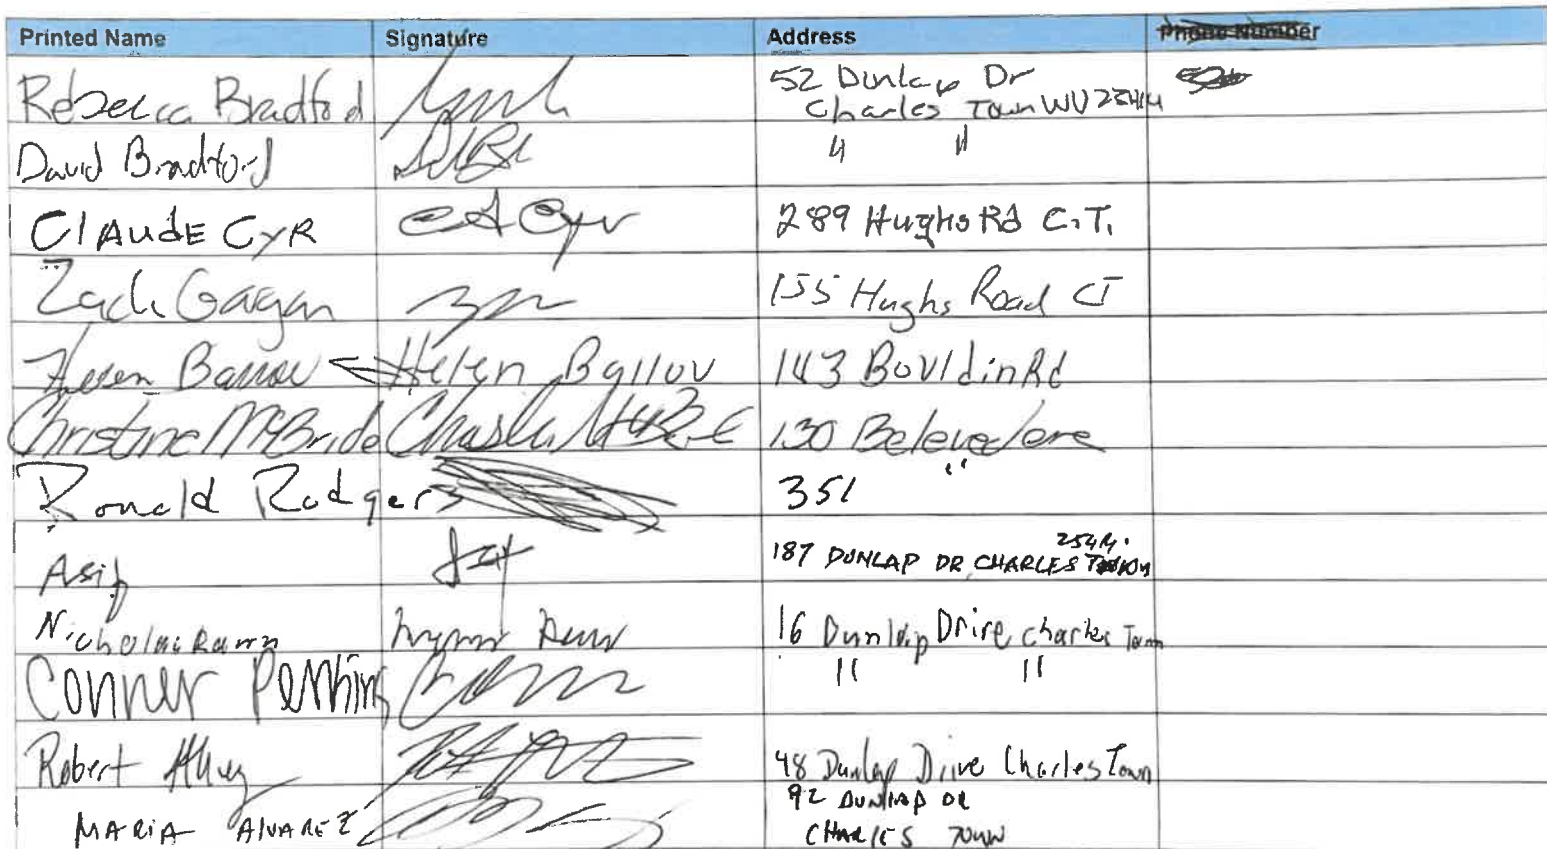 Printed Name Signature Address Phone Number
Rebecca Bradford 52 Dunlap Dr
Charles Town WV 25414
David Bradford " "
ClAUdE CYR 289 Hughs Rd C.T.
Zach Gagan 155 Hughs Road CT
Helen Ballou Helen Ballou 143 Bouldin Rd
Christine McBride 130 Belevedere
Ronald Rodgers 351 "
Asif 187 DUNLAP DR CHARLES TOWN
25414.
16 Dunlap Drive charles Town
Conner Perkins " "
Robert 48 Dunlap Drive Charles Town
MARIA AlVAREZ 92 DUNlAP DR
CHARlES TOWN